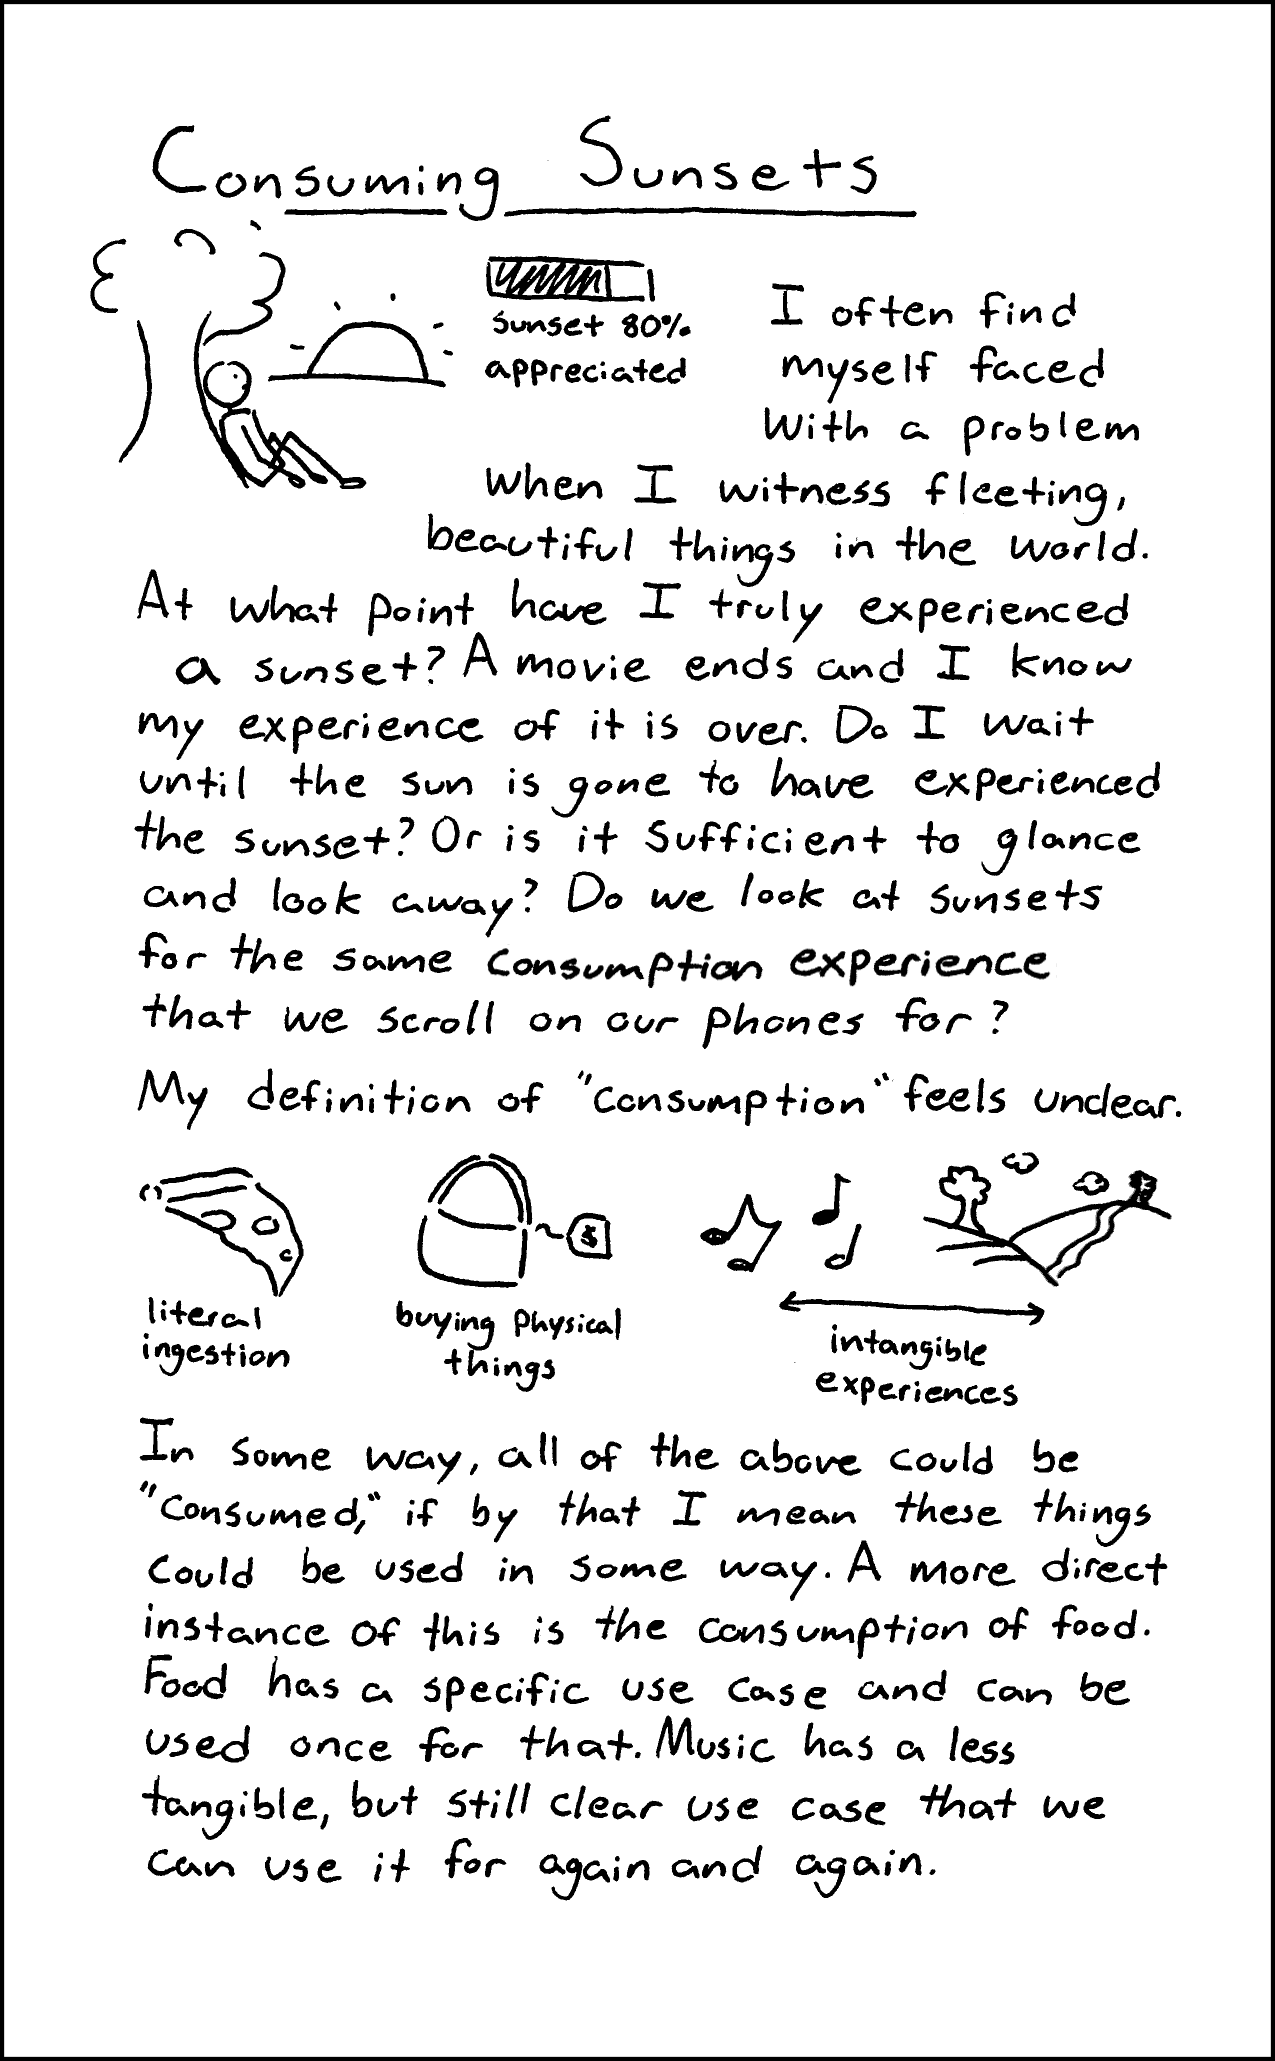 Consuming Sunsets
Sunset 80%
appreciated
I often find
myself faced
With a problem
when I witness fleeting,
beautiful things in the world.
At what point have I truly experienced
a sunset? A movie ends and I know
my experience of it is over. Do I wait
until the sun is gone to have experienced
the sunset? Or is it sufficient to glance
and look away? Do we look at sunsets
for the same consumption experience
that we scroll on our phones for?
My definition of "consumption" feels unclear.
$
literal
ingestion
buying physical
things
intangible
experiences
In some way, all of the above could be
"consumed," if by that I mean these things
could be used in some way. A more direct
instance of this is the consumption of food.
Food has a specific use case and can be
used once for that. Music has a less
tangible, but still clear use case that we
can use it for again and again.